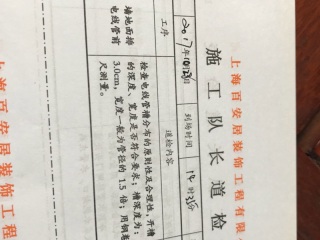 上海百安居装饰工程有限
施工队长道检
2017年10月23日
到场时间
14时35分
工序
道检内容
墙地面接
电线管前
检查电线管槽分布的原则性及合理性，开槽
的深度、宽度是否符合要求；槽深度为：
3.0cm，宽度一般为管径的1.5倍；用钢卷
尺测量。
百安居装饰工程